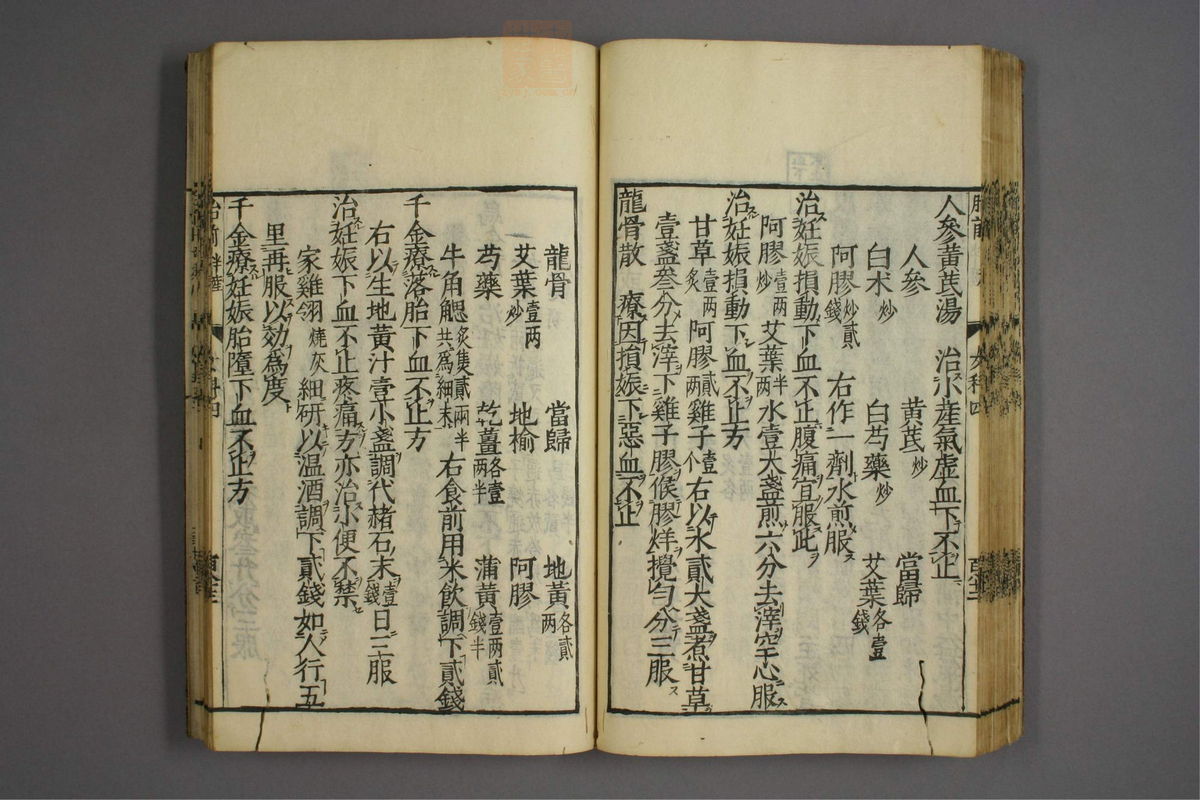 人參黃芪湯　治小產氣虛血下不止
人參　黃芪炒　當歸
白朮炒　白芍藥炒　艾葉各壹錢
阿膠炒貳錢　右作一劑水煎服
治妊娠損動下血不止腹痛宜服此
阿膠壹两炒　艾葉半两　水壹大盞煎六分去滓空心服
治妊娠損動下血不止方
甘草壹两炙　阿膠貳两　雞子壹个　右以水貳大盞煮甘草
壹盞叄分去滓下雞子膠候膠烊攪勻分三服
龍骨散　療因損娠下惡血不止
龍骨　當歸　地黃各貳两
艾葉壹两炒　地榆　阿膠
芍藥　乾薑各壹两半　蒲黃壹两貳錢半
牛角䚡炙隻貳兩半共為細末　右食前用米飲調下貳錢
千金療落胎下血不止方
右以生地黃汁壹小盞調代赭石末壹錢日三服
治妊娠下血不止疼痛方亦治小便不禁
家雞翎燒灰　細研以温酒調下貳錢如人行五
里再服以効為度
千金療妊娠胎墮下血不止方